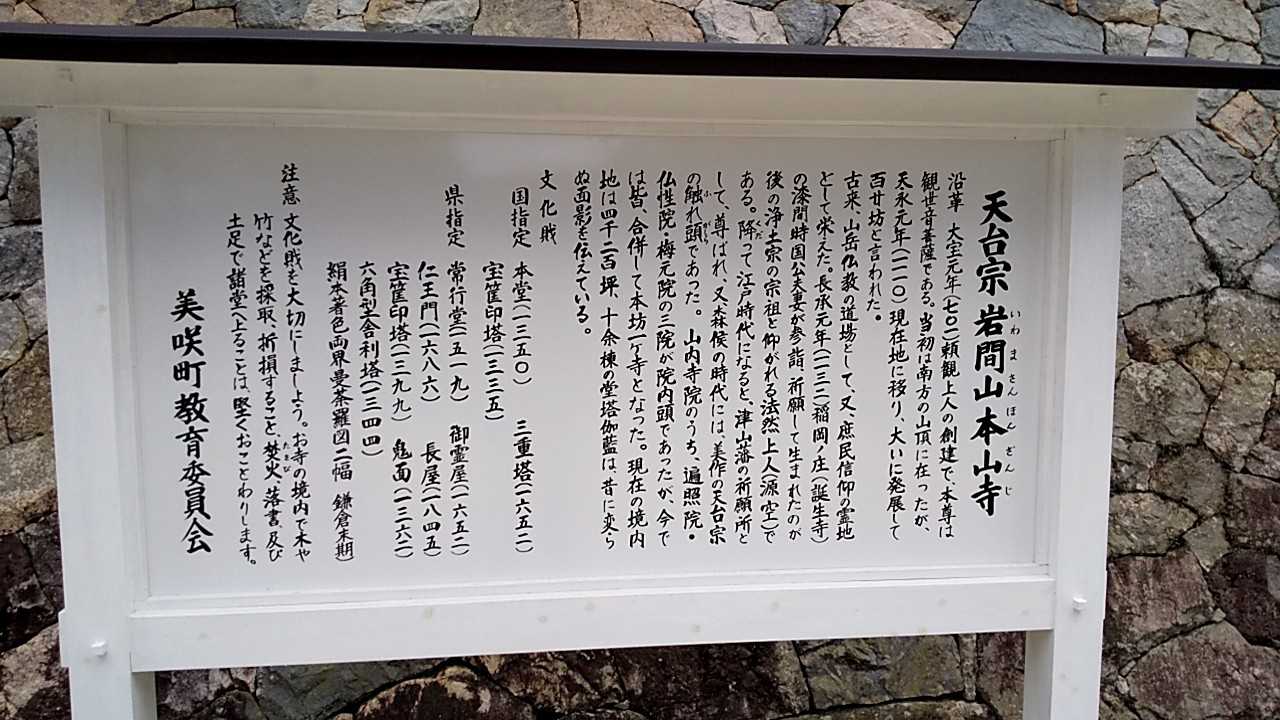 天台宗 岩間山本山寺
いわ ま さん ほん ざん じ
沿革 大宝元年(七〇一)頼観上人の創建で、本尊は
観世音菩薩である。当初は南方の山頂に在ったが、
天永元年(一一一〇)現在地に移り、大いに発展して
百廿坊と言われた。
古来、山岳仏教の道場として、又、庶民信仰の霊地
として栄えた。長承元年(一一三二)稲岡ノ庄(誕生寺)
の漆間時国公夫妻が参詣、祈願して生まれたのが
後の浄土宗の宗祖と仰がれる法然上人(源空)で
ある。降って江戸時代になると、津山藩の祈願所と
くだ
して、尊ばれ、又、森候の時代には、美作の天台宗
の触れ頭であった。山内寺院のうち、遍照院・
ふ がしら
仏性院・梅元院の三院が院内頭であったが、今で
は皆、合併して本坊一ヶ寺となった。現在の境内
地は四千二百坪、十余棟の堂塔伽藍は、昔に変ら
ぬ面影を伝えている。
文化財
国指定 本堂(一三五〇) 三重塔(一六五二)
宝筐印塔(一三三五)
県指定 常行堂(一五一九) 御霊屋(一六五二)
仁王門(一六八六) 長屋(一八四五)
宝筐印塔(一三九九) 鬼面(一三六二)
六角型舎利塔(一三四四)
絹本著色両界曼荼羅図二幅 鎌倉末期)
注意 文化財を大切にしましょう。お寺の境内で木や
竹などを採取、折損すること、焚火、落書、及び
たきび
土足で諸堂へ上ることは、堅くおことわりします。
美咲町教育委員会